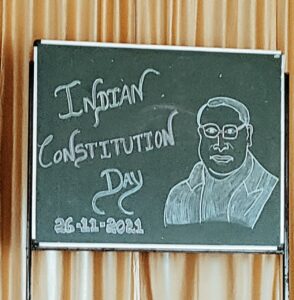 INDIAN
CONSTITUTION
DAY
26-11-2021